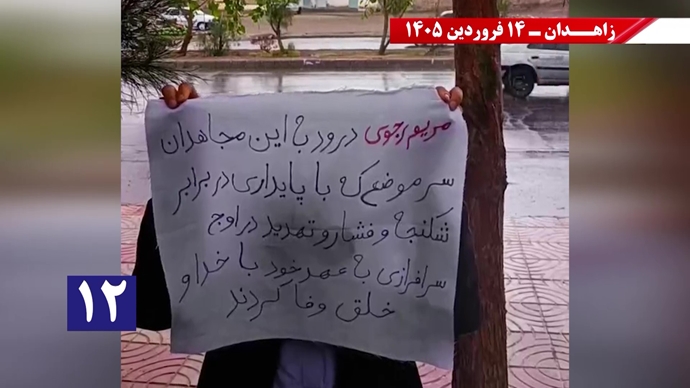 زاهـدان ـ ۱۴ فروردین ۱۴۰۵
مریم رجوی درود با این مجاهدان
سر موضع که با پایداری در برابر
شکنجه و فشار و تهدید در اوج
سرافرازی به عهد خود با خدا و
خلق وفا کردند
۱۲